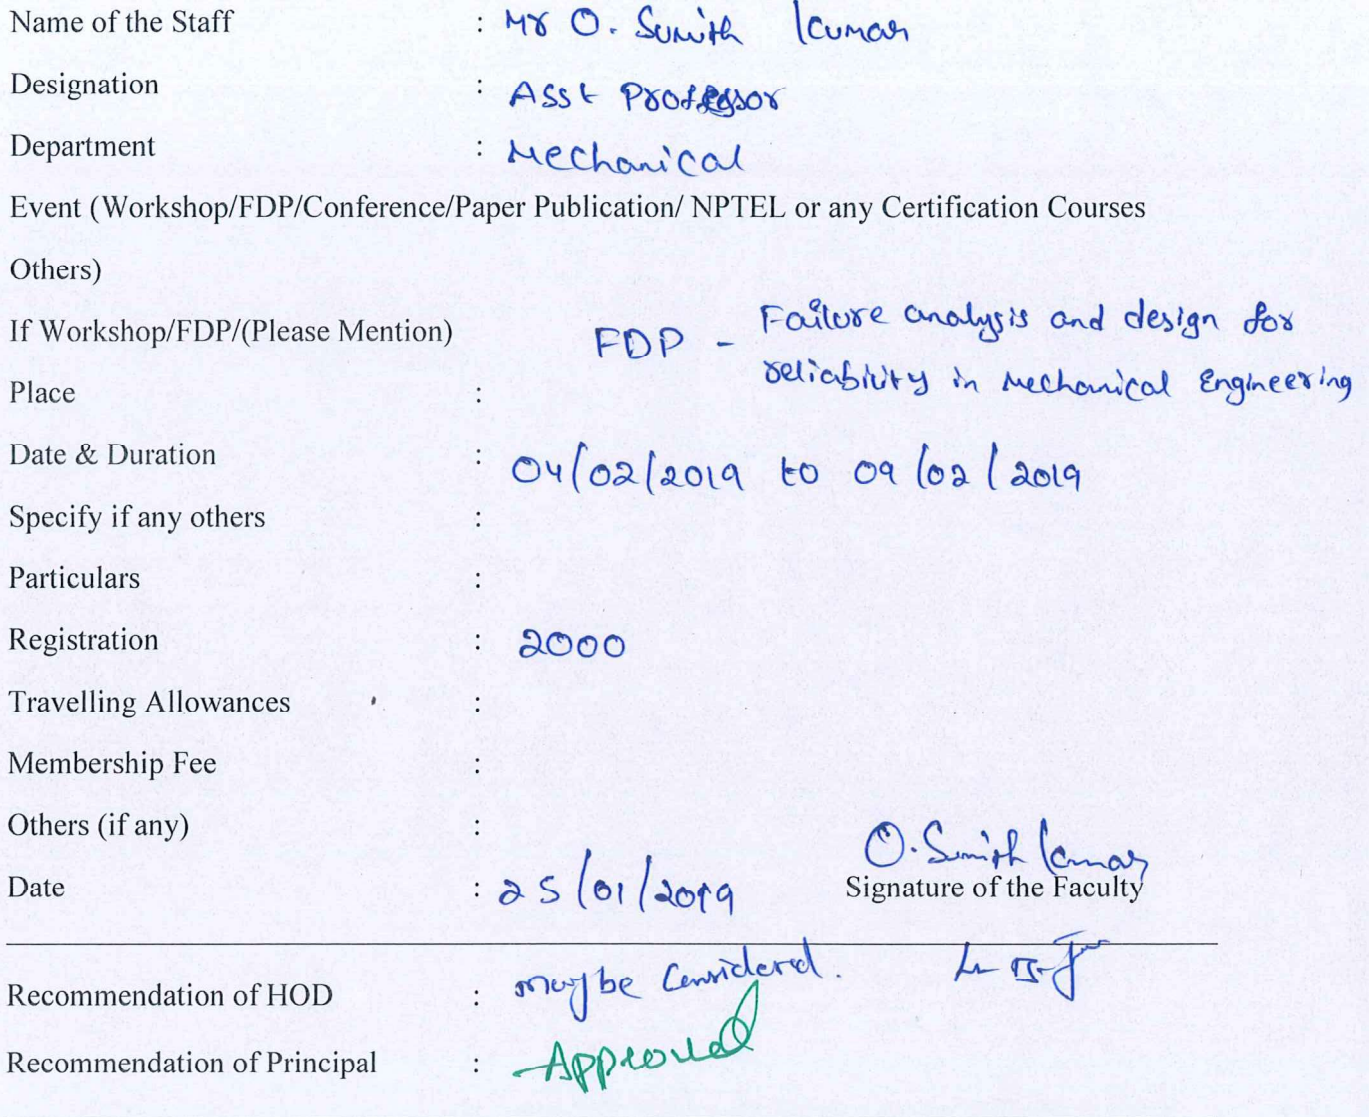 Name of the Staff : Mr O. Sumith Kumar
Designation : Asst Professor
Department : Mechanical
Event (Workshop/FDP/Conference/Paper Publication/ NPTEL or any Certification Courses
Others)
If Workshop/FDP/(Please Mention) FDP - Failure analysis and design for
reliability in Mechanical Engineering
Place :
Date & Duration : 04/02/2019 to 09/02/2019
Specify if any others :
Particulars :
Registration : 2000
Travelling Allowances :
Membership Fee :
Others (if any) :
O. Sumith Kumar
Date : 25/01/2019 Signature of the Faculty
Recommendation of HOD : may be Considered.
Recommendation of Principal : Approved